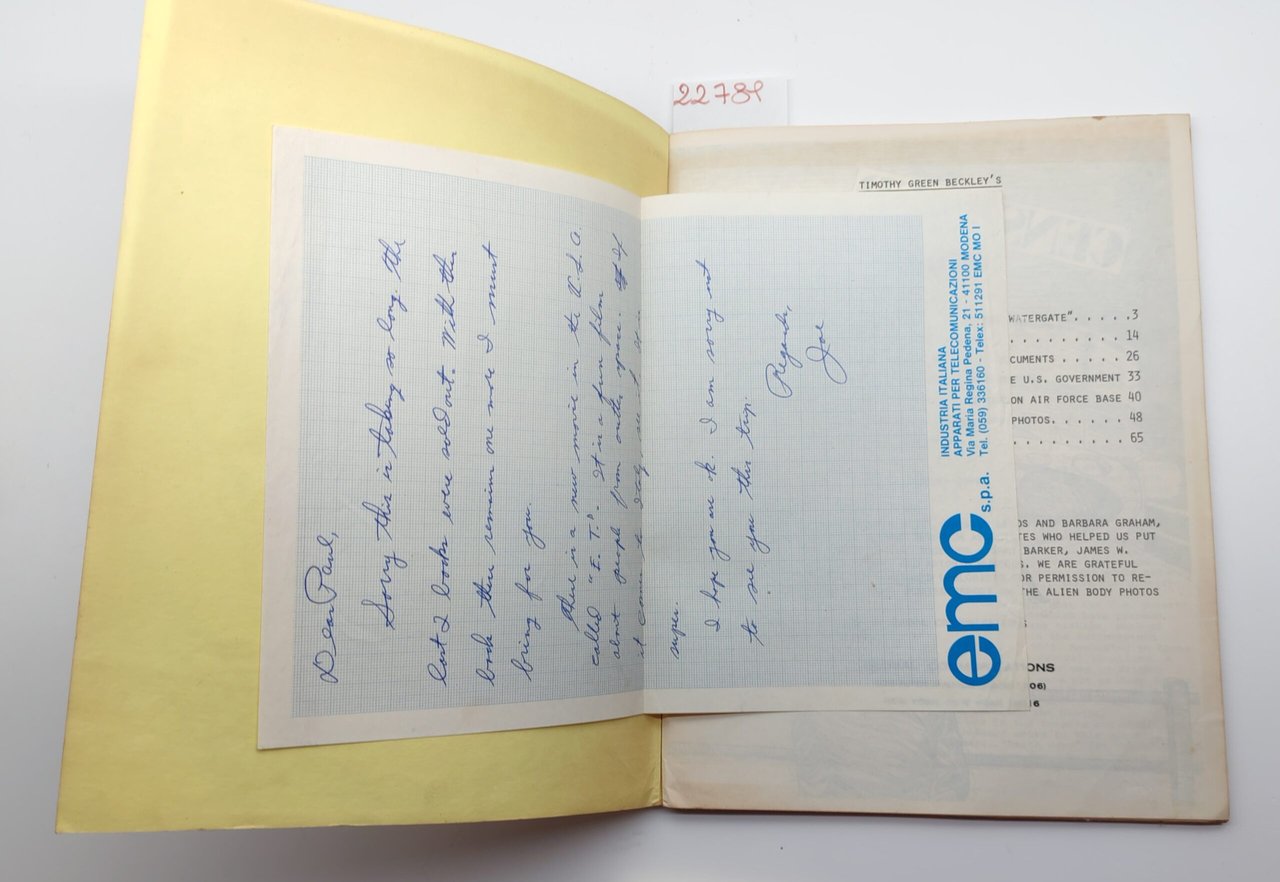 22789
Dear Paul,
Sorry this is taking so long. The
last 2 books were sold out. With this
book there remain one more I must
bring for you.
There is a new movie in the U.S.A.
called "E.T.". It is a fun film
about people from outer space. If
it comes to Italy, see it.
super.
I hope you are ok. I am sorry not
to see you this trip.
Regards,
Joe
emc s.p.a.
INDUSTRIA ITALIANA
APPARATI PER TELECOMUNICAZIONI
Via Maria Regina Pedena, 21 - 41100 MODENA
Tel. (059) 336160 - Telex: 511291 EMC MO I
TIMOTHY GREEN BECKLEY'S
WATERGATE". . . . .3
. . . . . . . . . 14
CUMENTS . . . . . 26
E U.S. GOVERNMENT 33
ON AIR FORCE BASE 40
PHOTOS. . . . . . 48
. . . . . . . . . 65
OS AND BARBARA GRAHAM,
TES WHO HELPED US PUT
BARKER, JAMES W.
S. WE ARE GRATEFUL
OR PERMISSION TO RE-
THE ALIEN BODY PHOTOS
ONS
06)
16